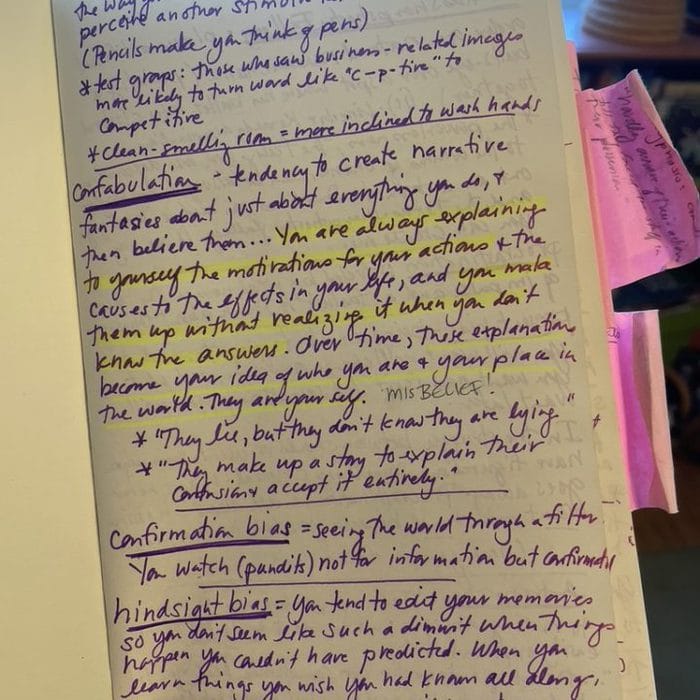 the way
perceive another stimul
(Pencils make you think of pens)
*test groups: those who saw business-related images
more likely to turn word like "c-p-tive" to
competitive
*clean-smelling room = more inclined to wash hands
Confabulation - tendency to create narrative
fantasies about just about everything you do, &
then believe them... You are always explaining
to yourself the motivations for your actions & the
causes to the effects in your life, and you make
them up without realizing it when you don't
know the answers. Over time, these explanations
become your idea of who you are & your place in
the world. They are your self. MISBELIEF!
* "They lie, but they don't know they are lying."
* "They make up a story to explain their
confusion & accept it entirely."
Confirmation bias = seeing the world through a filter
You watch (pundits) not for information but confirmati
hindsight bias = you tend to edit your memories
so you don't seem like such a dimwit when things
happen you couldn't have predicted. When you
learn things you wish you had known all along,